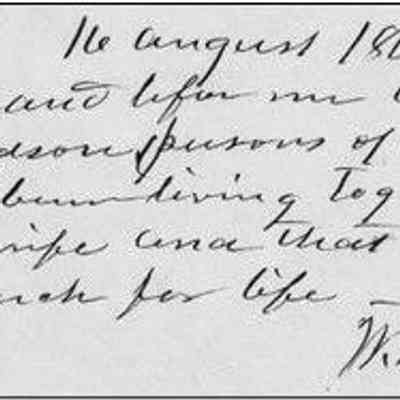 16 august 18
and befor me
dson persons of
been living tog
wife and that
for life